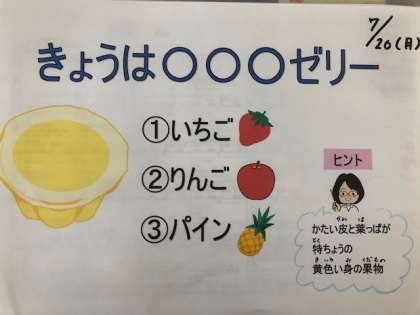 7/26(月)
きょうは〇〇〇ゼリー
①いちご
②りんご
③パイン
ヒント
かたい皮と葉っぱが
特ちょうの
黄色い身の果物